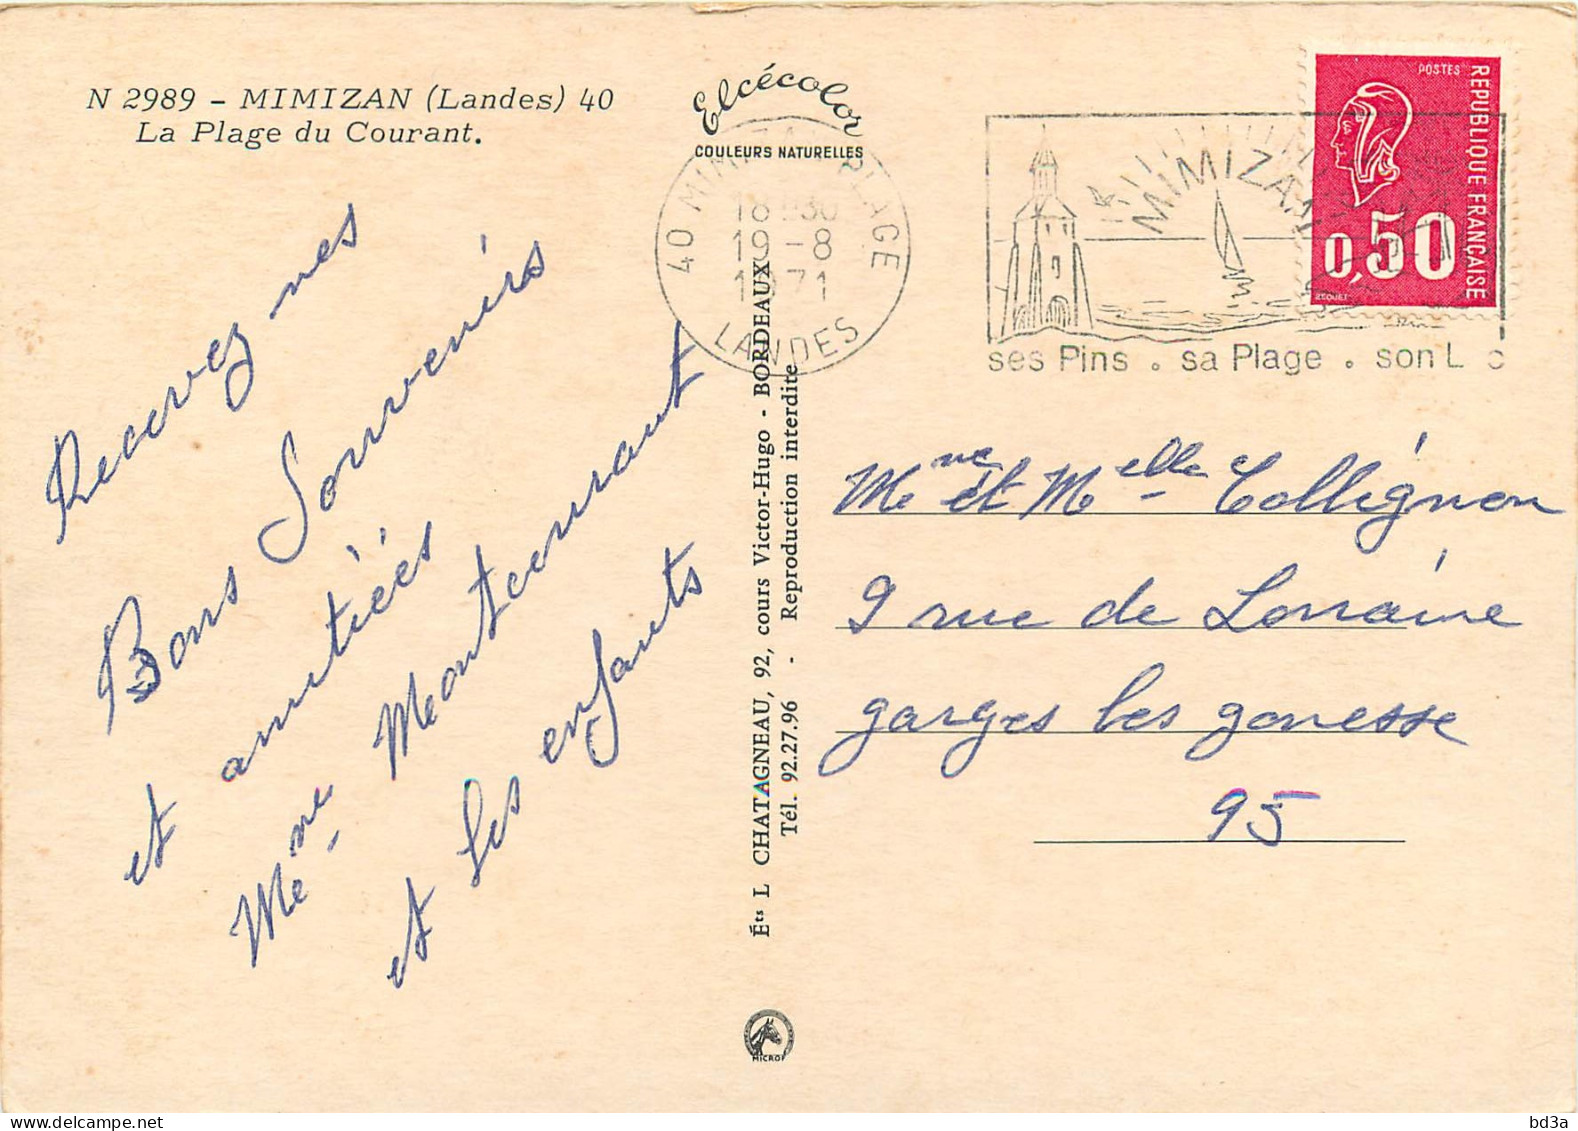 N 2989 – MIMIZAN (Landes) 40
La Plage du Courant.
Elcécolor
COULEURS NATURELLES
40 MIMIZAN PLAGE
18H30
19-8
1971
LANDES
MIMIZAN
ses Pins . sa Plage . son L c
POSTES
REPUBLIQUE FRANÇAISE
0,50
Recevez mes
Bons Souvenirs
et amitiées
Mme Montcourant
et les enfants
Éts L CHATAGNEAU, 92, cours Victor-Hugo - BORDEAUX
Tél. 92.27.96 - Reproduction interdite
Mme et Melle Collignon
9 rue de Lorraine
garges les gonesse
95
MICRO
bd3a